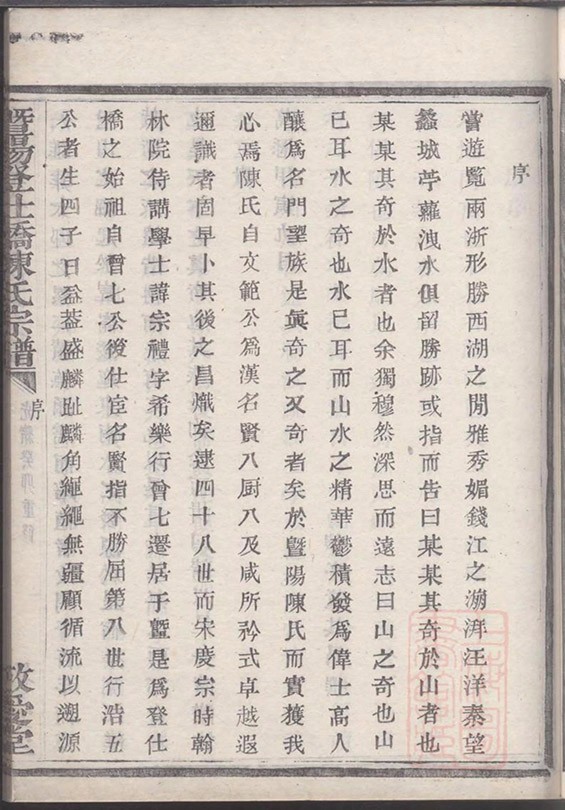 序
嘗遊覽兩浙形勝西湖之閒雅秀媚錢江之㴸湃汪洋秦望
蠡城苧蘿洩水俱留勝跡或指而告曰某某其奇於山者也
某某其奇於水者也余獨穆然深思而遠志曰山之奇也山
已耳水之奇也水已耳而山水之精華鬱積發爲偉士高人
釀爲名門望族是眞奇之又奇者矣於曁陽陳氏而實獲我
心焉陳氏自文範公爲漢名賢八厨八及咸所矜式卓越遐
邇識者固早卜其後之昌熾矣逮四十八世而宋慶宗時翰
林院侍講學士諱宗禮字希樂行曾七遷居于曁是爲登仕
橋之始祖自曾七公後仕宦名賢指不勝屈第八世行浩五
公者生四子曰盆葢盛麟趾麟角繩繩無疆顧循流以遡源
暨陽登仕橋陳氏宗譜
序
光緒癸卯重修
敦愛堂